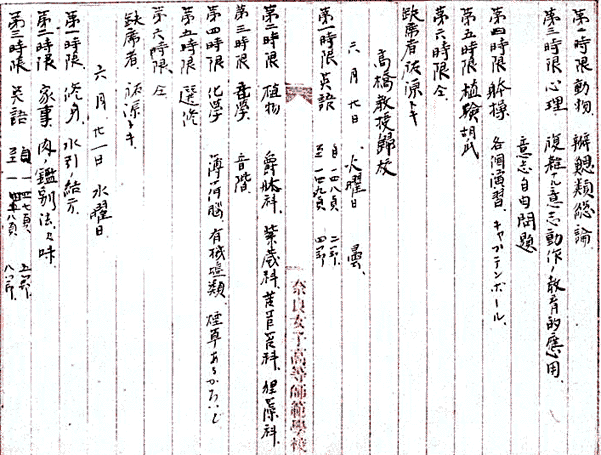 第二時限 動物 瓣鰓類總論
第三時限 心理 複雜ナル意志動作ノ教育的應用
意志自由問題
第四時限 體操 各個演習、キャプテンボール、
第五時限 植驗 胡氏
第六時限 仝
缺席者 トキ
高橋教授歸校
六月廿日 火曜日 曇、
第一時限 英語 自一四八頁 二節
至一四九頁 四節
第二時限 植物 爵牀科、紫葳科、苦苣苔科、狸藻科、
第三時限 音學 音階
第四時限 化學 薄荷腦、有機塩類、煙草あるかろいど
第五時限 選修
第六時限 仝
缺席者 トキ
六月廿一日 水曜日
第一時限 修身 水引ノ結方
第二時限 家事 肉ノ鑑別法ト味
第三時限 英語 自一四七頁 五節
至一四八頁 八節
奈良女子高等師範學校